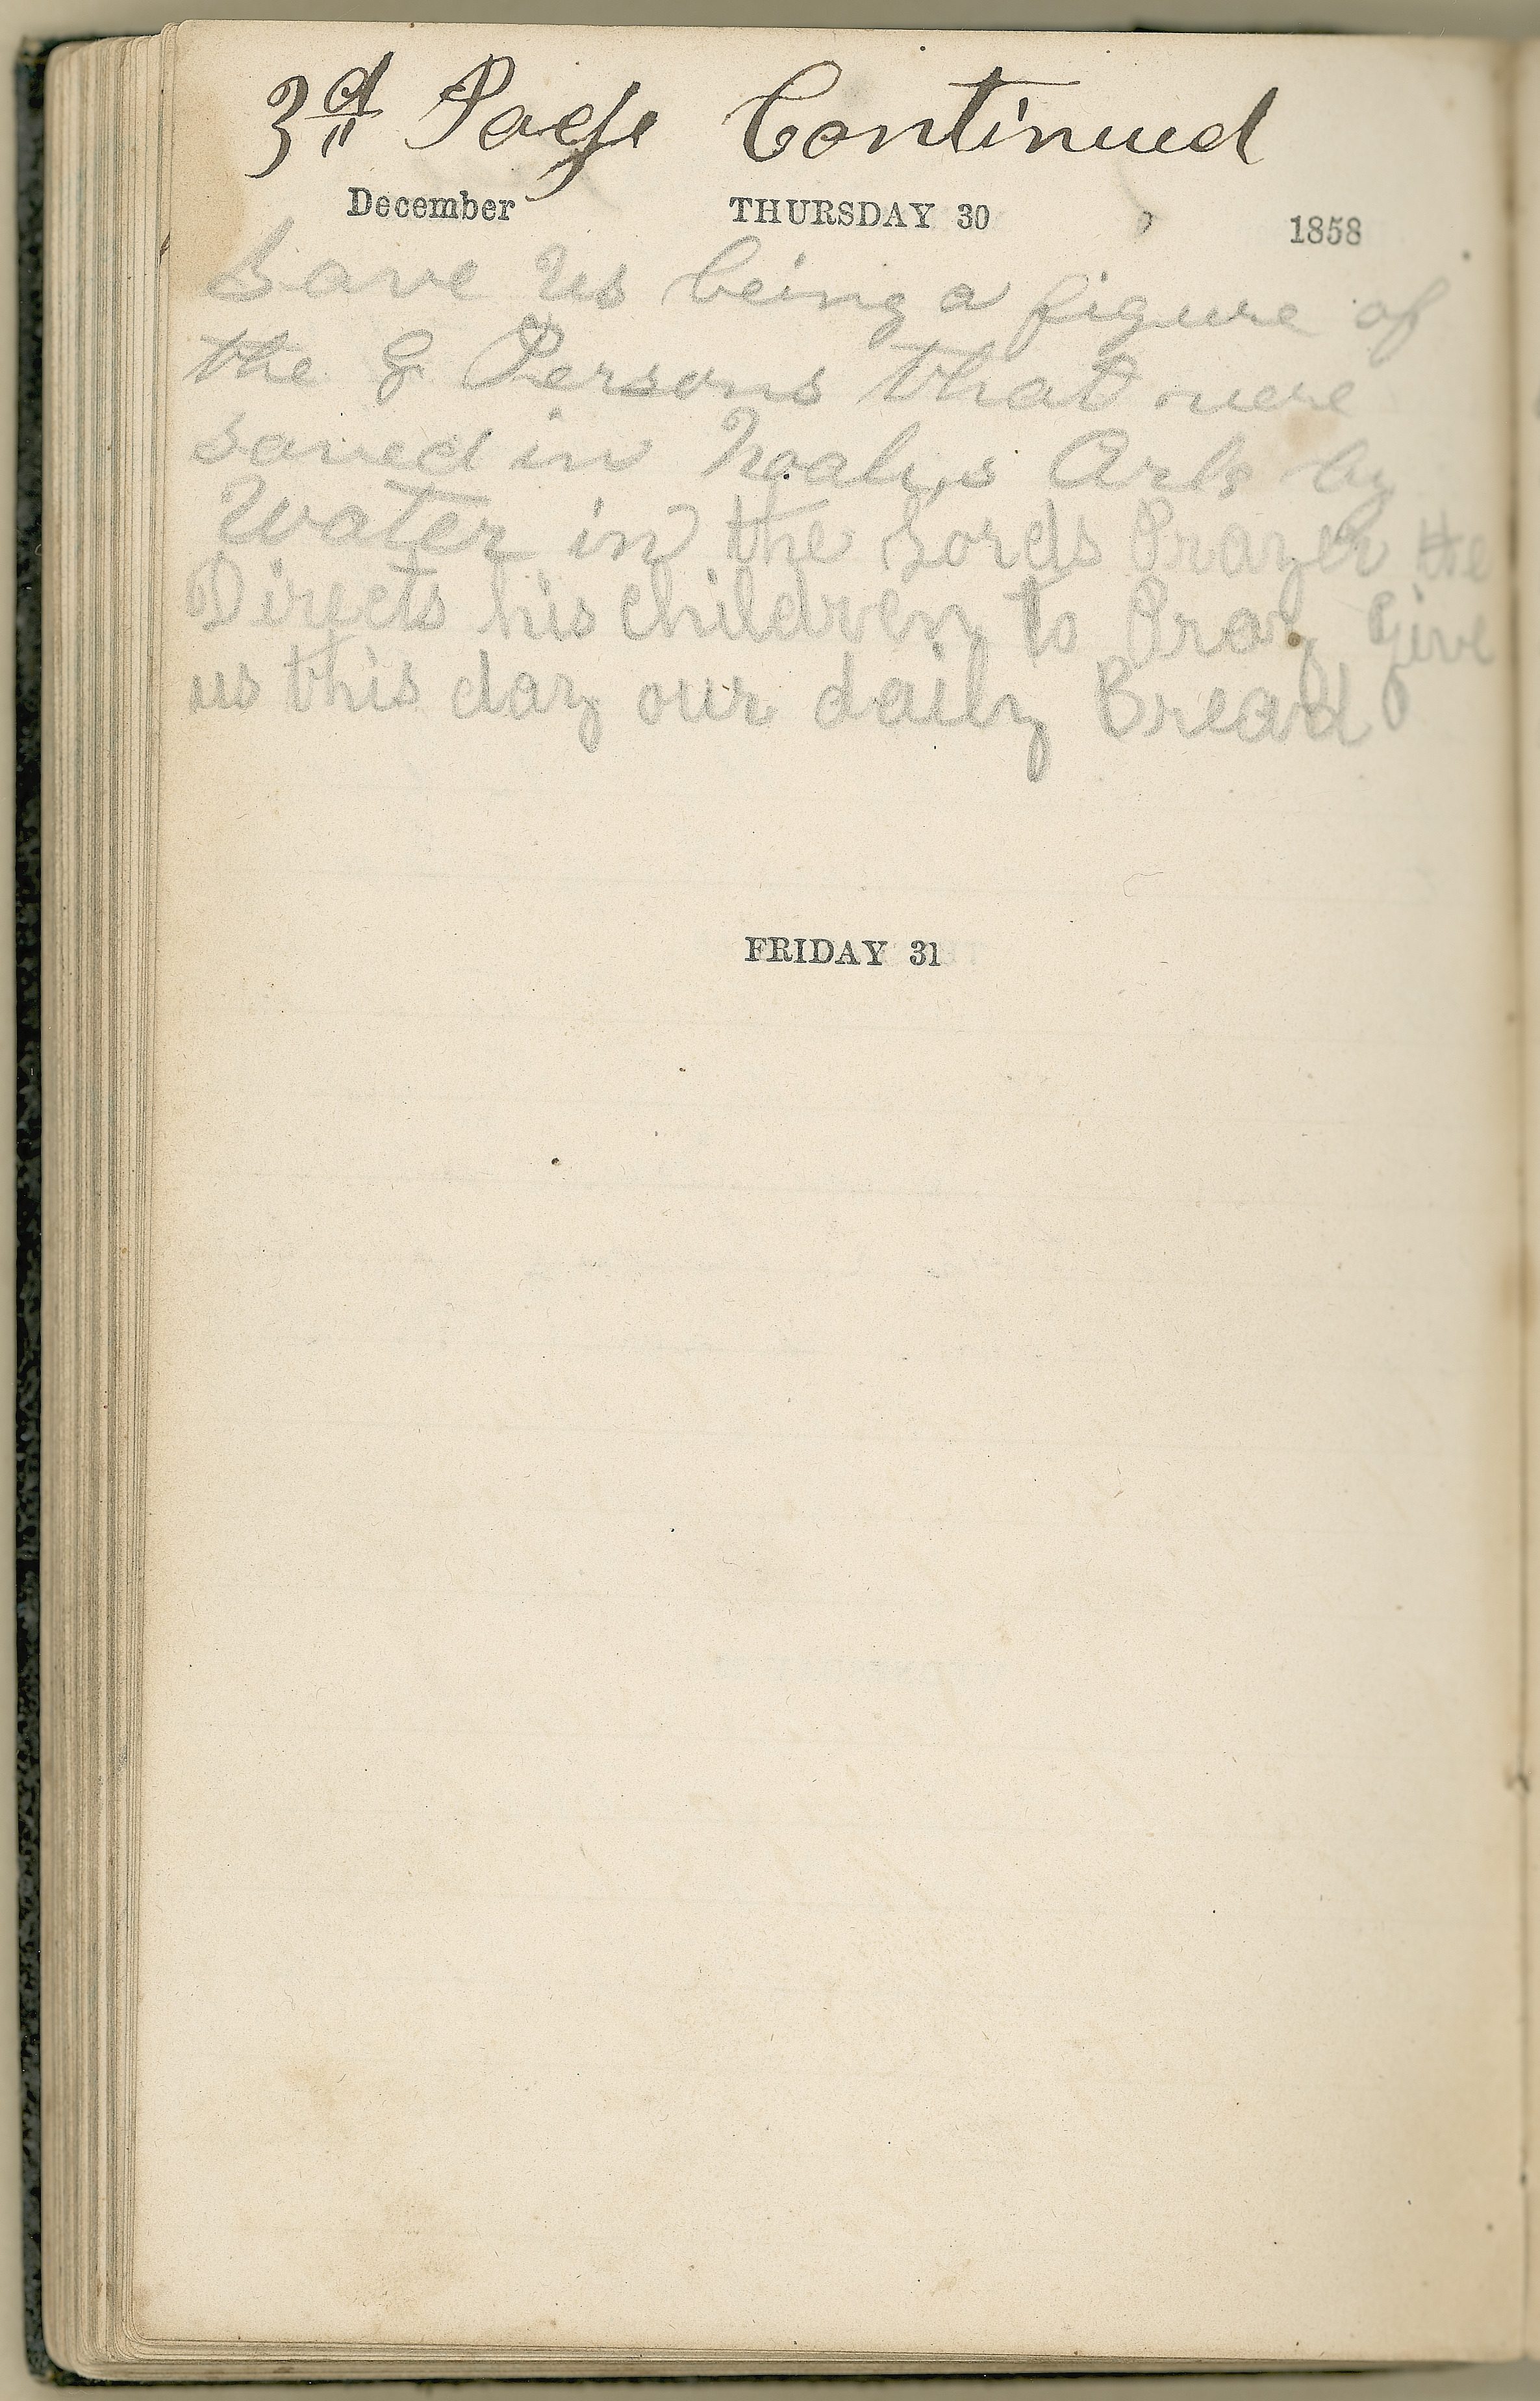 3d Page Continued
December THURSDAY 30 1858
Save us being a figure of
the 8 Persons that were
saved in Noahs Ark by
Water in the Lords Prayer He
Directs his children to Pray Give
us this day our daily Bread
FRIDAY 31